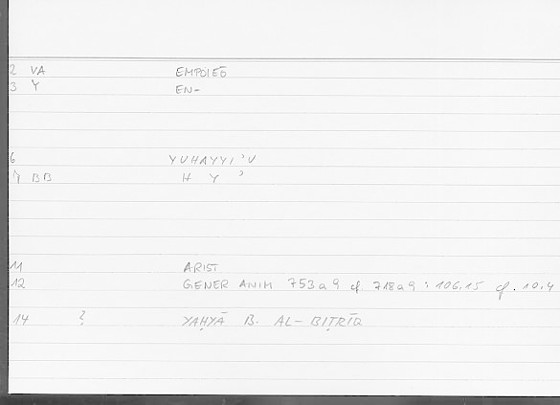 2 VA EMPOIEŌ
3 Y EN-
6 YUHAYYI'U
7 BB H Y '
11 ARIST
12 GENER ANIM 753a9 cf 718a9 : 106.15 cf. 10.4
14 ? YAḤYĀ B. AL-BIṬRĪQ